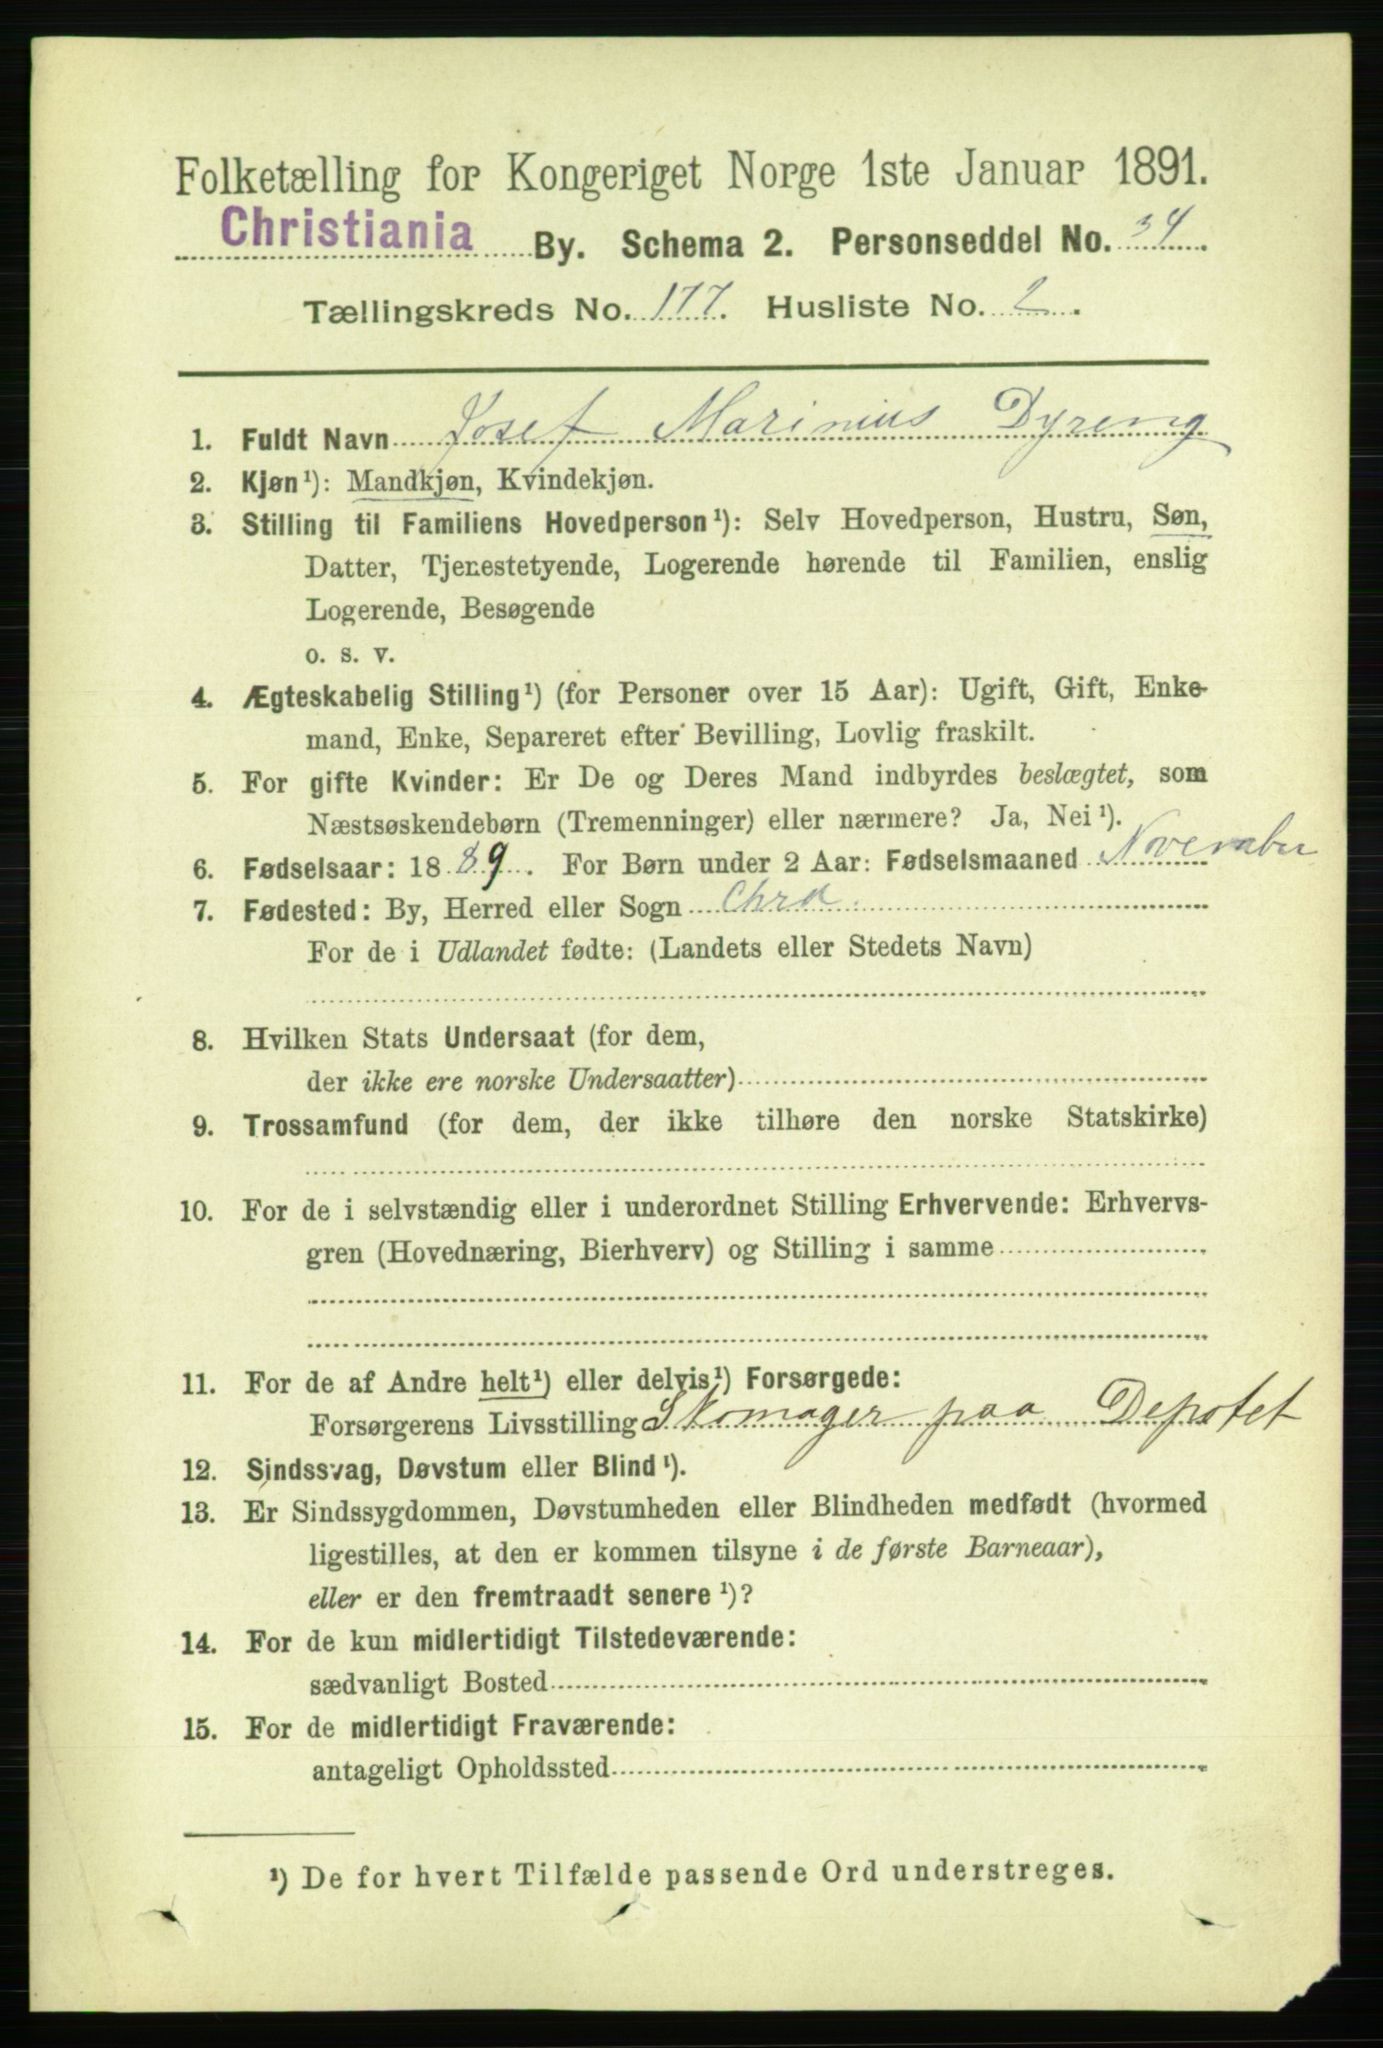 Folketælling for Kongeriget Norge 1ste Januar 1891.
Christiania By. Schema 2. Personseddel No. 34.
Tællingskreds No. 177. Husliste No. 2.
1. Fuldt Navn Josef Marinius Dyreng
2. Kjøn¹): Mandkjøn, Kvindekjøn.
3. Stilling til Familiens Hovedperson¹): Selv Hovedperson, Hustru, Søn,
Datter, Tjenestetyende, Logerende hørende til Familien, enslig
Logerende, Besøgende
o. s. v.
4. Ægteskabelig Stilling¹) (for Personer over 15 Aar): Ugift, Gift, Enke-
mand, Enke, Separeret efter Bevilling, Lovlig fraskilt.
5. For gifte Kvinder: Er De og Deres Mand indbyrdes beslægtet, som
Næstsøskendebørn (Tremenninger) eller nærmere? Ja, Nei¹).
6. Fødselsaar: 1889. For Børn under 2 Aar: Fødselsmaaned November
7. Fødested: By, Herred eller Sogn Chra.
For de i Udlandet fødte: (Landets eller Stedets Navn)
8. Hvilken Stats Undersaat (for dem,
der ikke ere norske Undersaatter)
9. Trossamfund (for dem, der ikke tilhøre den norske Statskirke)
10. For de i selvstændig eller i underordnet Stilling Erhvervende: Erhvervs-
gren (Hovednæring, Bierhverv) og Stilling i samme
11. For de af Andre helt¹) eller delvis¹) Forsørgede:
Forsørgerens Livsstilling Skomager paa Depotet
12. Sindssvag, Døvstum eller Blind¹).
13. Er Sindssygdommen, Døvstumheden eller Blindheden medfødt (hvormed
ligestilles, at den er kommen tilsyne i de første Barneaar),
eller er den fremtraadt senere¹)?
14. For de kun midlertidigt Tilstedeværende:
sædvanligt Bosted
15. For de midlertidigt Fraværende:
antageligt Opholdssted
¹) De for hvert Tilfælde passende Ord understreges.